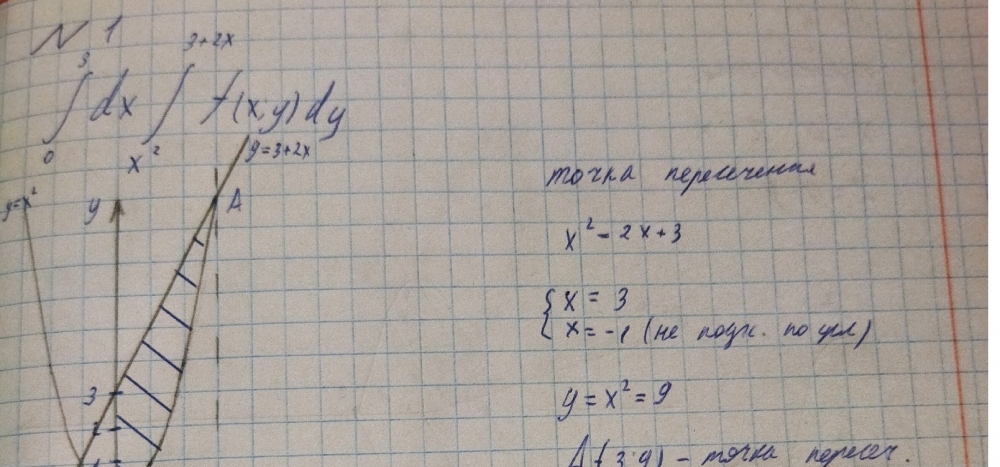 № 1
∫₀³ dx ∫_{x²}^{3+2x} f(x,y) dy
y=3+2x
y=x²
y
A
3
2
1
точка пересечения
x² - 2x + 3
{ x = 3
x = -1 (не подх. по усл)
y = x² = 9
A (3;9) - точка пересеч.